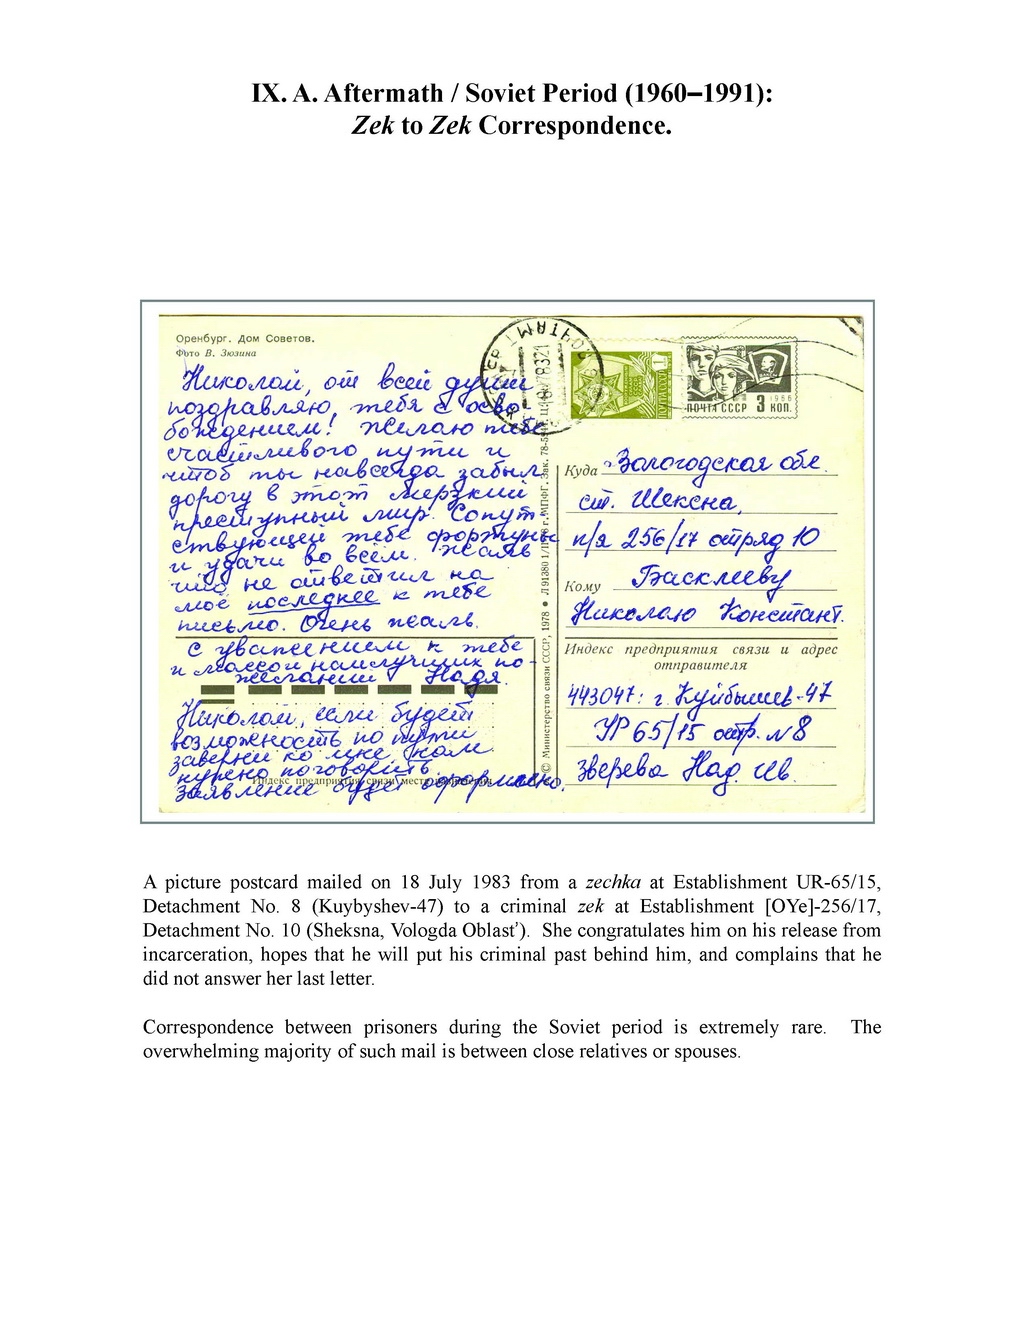 IX. A. Aftermath / Soviet Period (1960–1991):
Zek to Zek Correspondence.
Оренбург. Дом Советов.
Фото В. Зюзина
Николай, от всей души
поздравляю, тебя с осво-
бождением! Желаю тебе
счастливого пути и
чтоб ты навсегда забыл
дорогу в этот мерзкий
преступный мир. Сопут
ствующей тебе фортуны
и удачи во всем. Жаль
что не ответил на
моё последнее к тебе
письмо. Очень жаль.
С уважением к тебе
и массой наилучших по-
желаний Надя.
Николай, если будет
возможность по пути
заверни ко мне нам
нужно поговорить.
заявление будет оформлено.
Индекс предприятия связи места
© Министерство связи СССР, 1978 • Л 91380 МПФГ. Зак. 78-
ПОЧТА СССР 3 КОП.
1966
Куда Вологодская обл.
ст. Шексна,
п/я 256/17 отряд 10
Кому
Николаю Констант.
Индекс предприятия связи и адрес
отправителя
443047: г. Куйбышев-47
УР 65/15 отр. №8
Зверева Над.
A picture postcard mailed on 18 July 1983 from a zechka at Establishment UR-65/15,
Detachment No. 8 (Kuybyshev-47) to a criminal zek at Establishment [OYe]-256/17,
Detachment No. 10 (Sheksna, Vologda Oblast’). She congratulates him on his release from
incarceration, hopes that he will put his criminal past behind him, and complains that he
did not answer her last letter.
Correspondence between prisoners during the Soviet period is extremely rare. The
overwhelming majority of such mail is between close relatives or spouses.